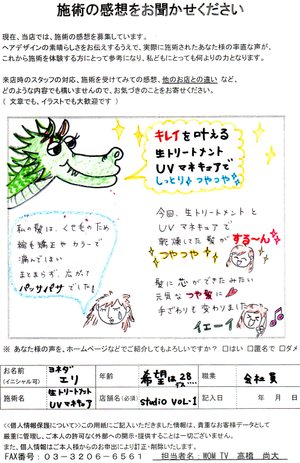 施術の感想をお聞かせください
現在、当店では、施術の感想を募集しています。
ヘアデザインの素晴らしさをお伝えするうえで、実際に施術されたあなた様の率直な声が、
これから施術を体験する方にとって参考になり、私どもにとても何よりの力となります。
来店時のスタッフの対応、施術を受けてみての感想、他のお店との違い など、
どのような内容でも構いませんので、お気づきのことをお寄せください。
( 文章でも、イラストでも大歓迎です )
キレイを叶える
生トリートメント
UVマネキュアで
しっとり つやつや
私の髪は、くせ毛のため
縮毛矯正やカラーで
痛んではい
まとまらず、広がって
パッサパサでした!
今回、生トリートメントと
UVマネキュアで
乾燥してた髪が する〜ん
つやつや
髪に芯ができたみたい
元気なつや髪に
手ざわりも変わりました
イェーイ
※ あなた様の声を、ホームページなどでご紹介してもよろしいですか? □はい □匿名で □ダメ
お名前
(イニシャル可)
ヨネダ
エリ
年齢
希望は28
職業
会社員
施術名
生トリートメント
UVマネキュア
店舗名(必須)
studio VOL-1
記入日
年 月 日
<<個人情報保護について>>この用紙にご記入いただきました情報は、貴重なお客様データとして
厳重に管理し、ご本人の許可なく外部への開示・提供することは一切ございません。
また、個人情報はご本人様からのお申出により訂正・削除いたします。
FAX番号:03-3206-6561 担当者名:WOM TV 高橋 尚大